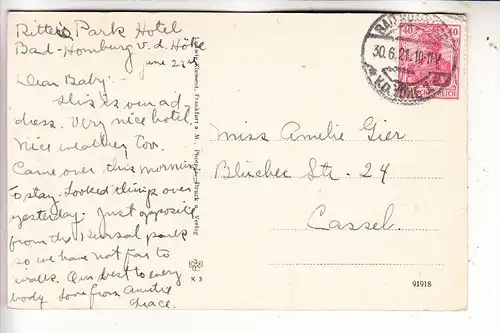 Ritters Park Hotel
Bad-Homburg v. d. Höhe
June 22nd
Dear Baby:-
This is our ad-
dress. Very nice hotel
nice weather too.
Came over this morning
to stay. Looked things over
yesterday. Just opposite
from the Kursal park
so we have not far to
walk. Our best to every
body love from Auntie
Grace.
Frankfurt a. M.
Druck u. Verlag
K 3
30.6.21. 10-11V
40 40
REICH
Miss Amelie Gier
Blücher Str. 24
Cassel.
91918